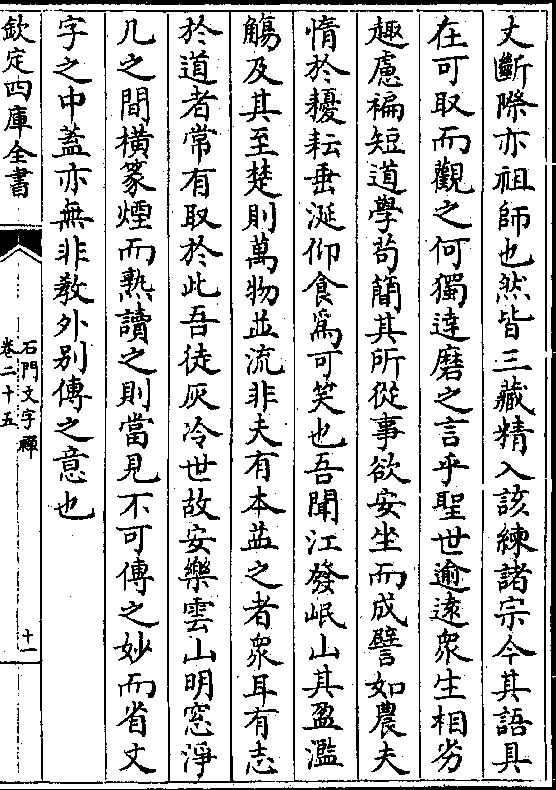 丈斷際亦祖師也然皆三藏精入該練諸宗今其語具
在可取而觀之何獨達磨之言乎聖世逾遠衆生相劣
趣慮褊短道學苟簡其所從事欲安坐而成譬如農夫
惰於耰耘垂涎仰食爲可笑也吾聞江發岷山其盈濫
觴及其至楚則萬物並流非夫有本益之者衆耳有志
於道者常有取於此吾徒灰冷世故安樂雲山明窓淨
几之間橫篆煙而熟讀之則當見不可傳之妙而省文
字之中蓋亦無非教外别傳之意也
欽定四庫全書
石門文字禪
卷二十五
十一